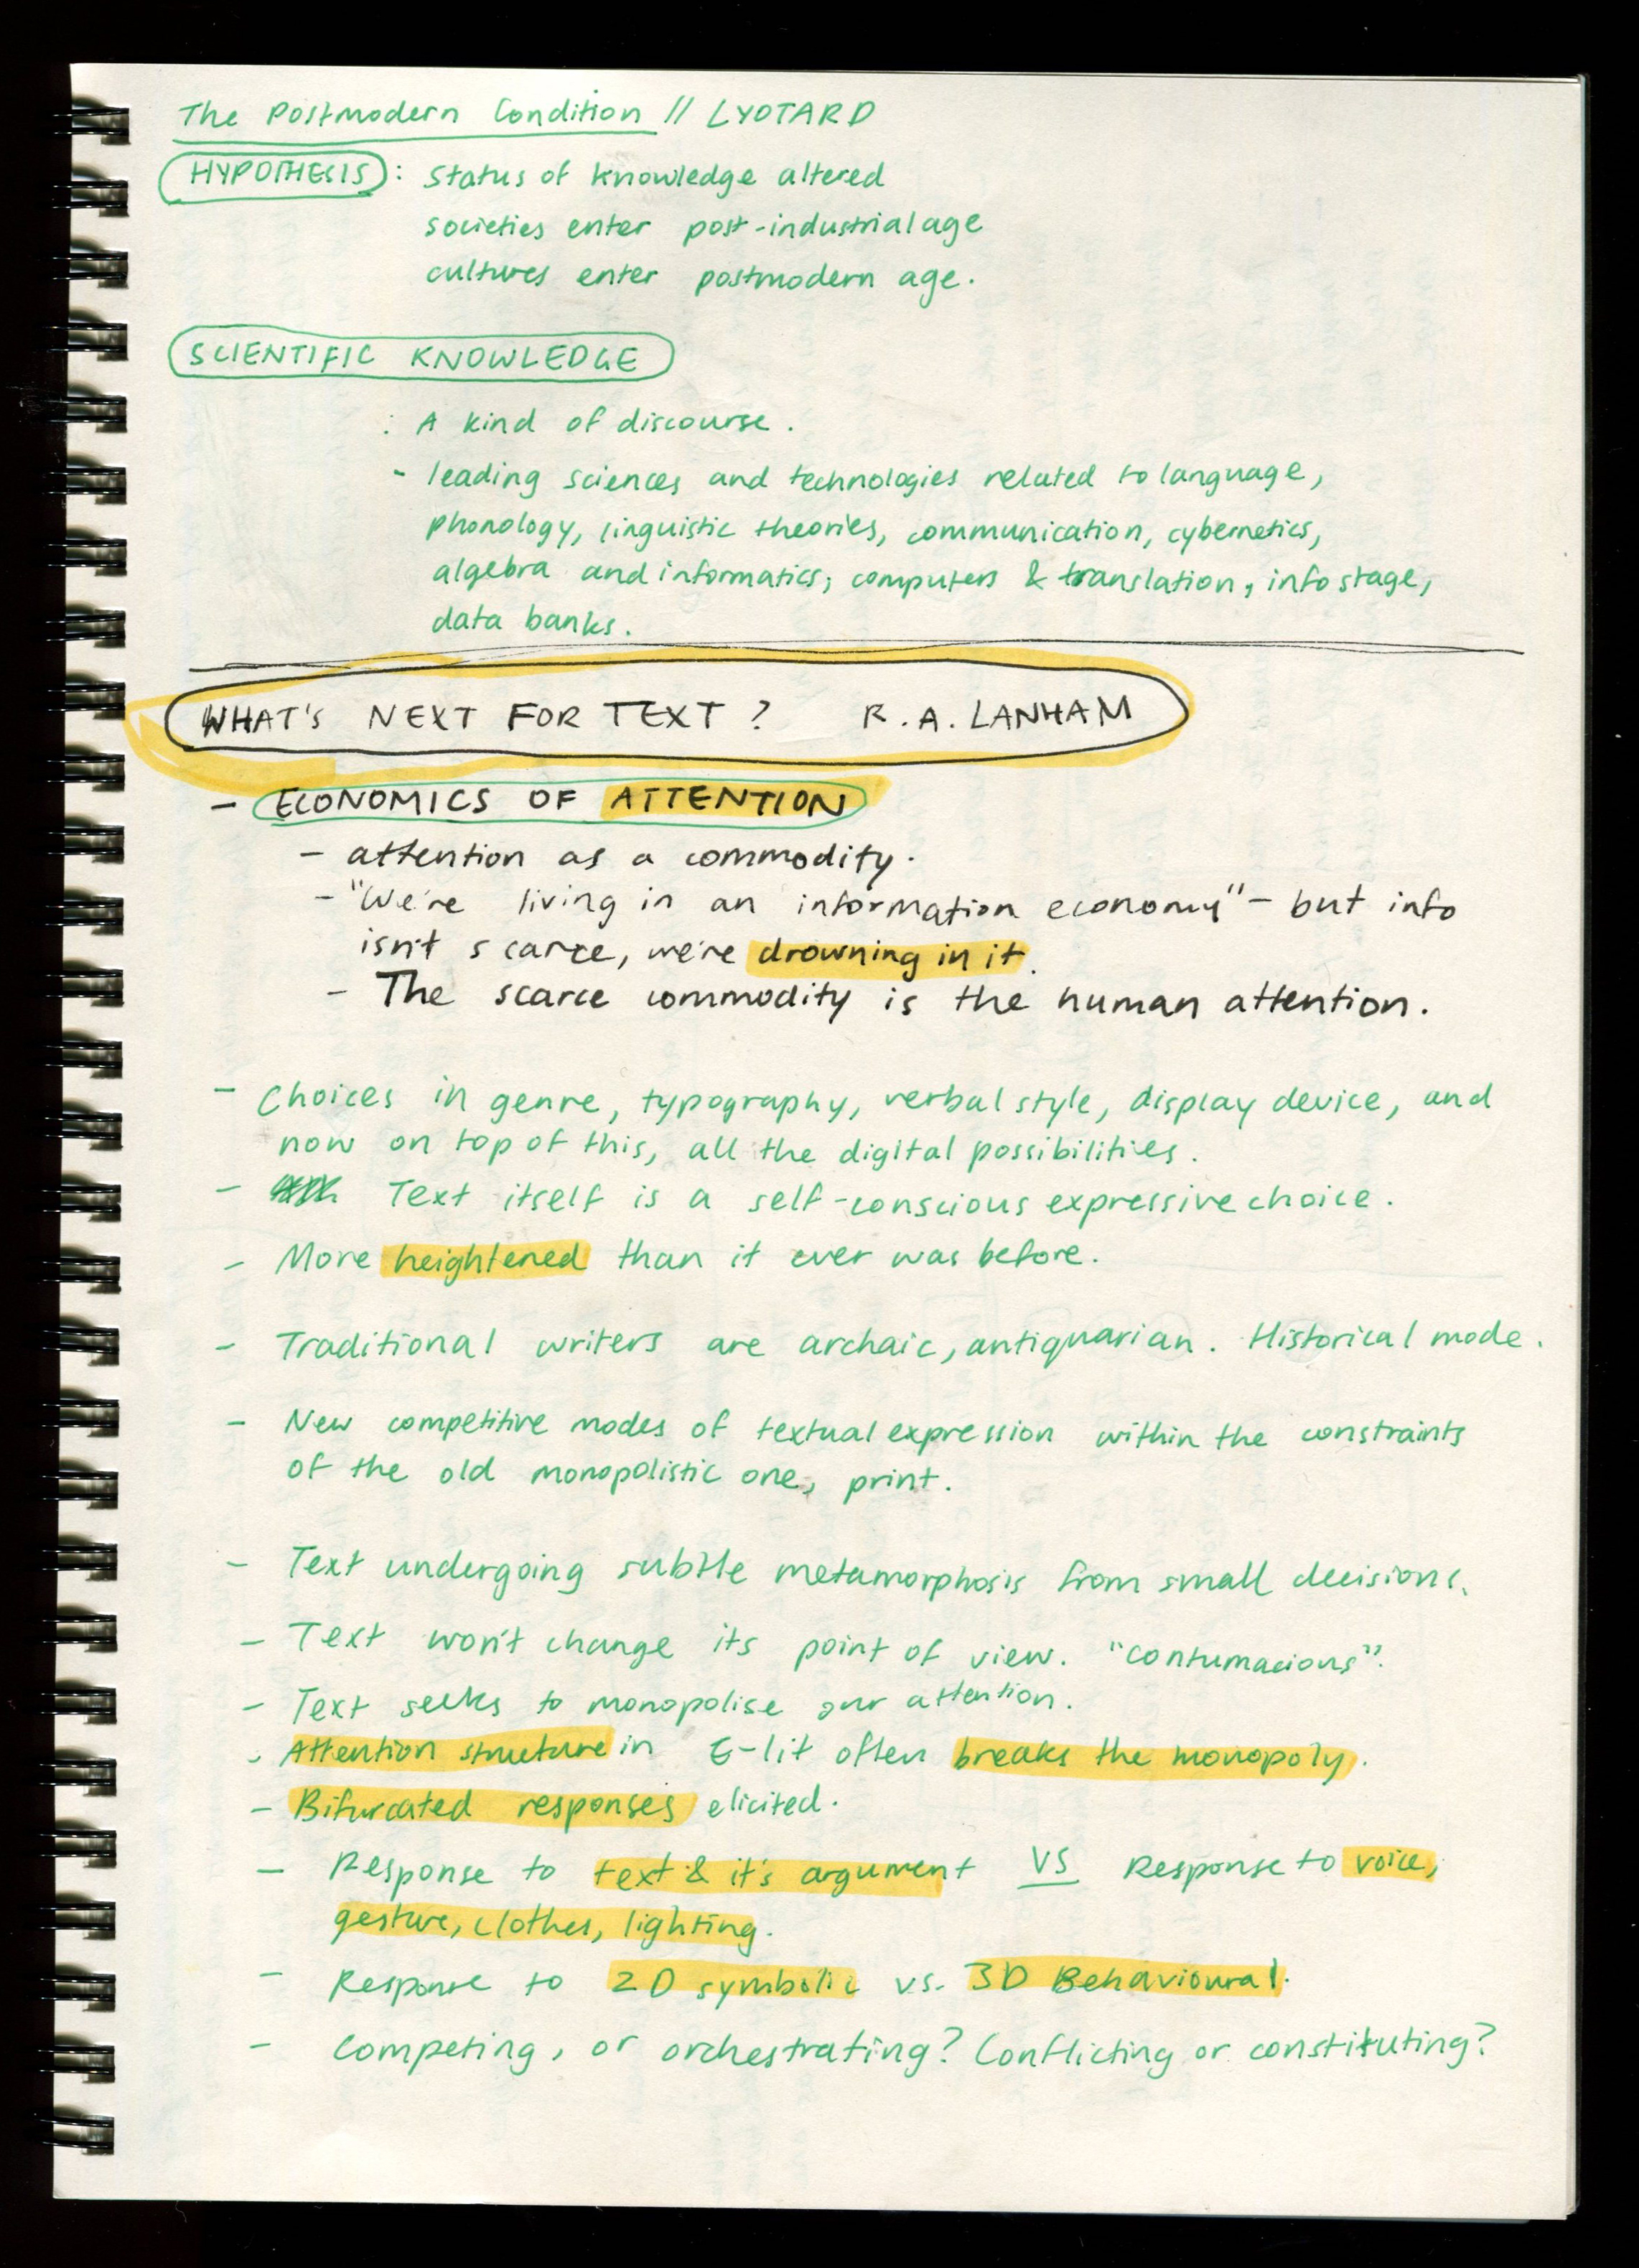 The Postmodern Condition // LYOTARD
HYPOTHESIS : Status of knowledge altered
societies enter post-industrial age
cultures enter postmodern age.
SCIENTIFIC KNOWLEDGE
: A kind of discourse.
- leading sciences and technologies related to language,
phonology, linguistic theories, communication, cybernetics,
algebra and informatics, computers & translation, info stage,
data banks.
WHAT'S NEXT FOR TEXT? R.A. LANHAM
- ECONOMICS OF ATTENTION
- attention as a commodity.
- "We're living in an information economy" - but info
isn't scarce, we're drowning in it.
- The scarce commodity is the human attention.
- Choices in genre, typography, verbal style, display device, and
now on top of this, all the digital possibilities.
- Text itself is a self-conscious expressive choice.
- More heightened than it ever was before.
- Traditional writers are archaic, antiquarian. Historical mode.
- New competitive modes of textual expression within the constraints
of the old monopolistic one, print.
- Text undergoing subtle metamorphosis from small decisions.
- Text won't change its point of view. "Contumacious".
- Text seeks to monopolise our attention.
- Attention structure in E-lit often breaks the monopoly.
- Bifurcated responses elicited.
- Response to text & it's argument VS Response to voice,
gesture, clothes, lighting.
- Response to 2D symbolic vs. 3D Behavioural.
- Competing, or orchestrating? Conflicting or constituting?